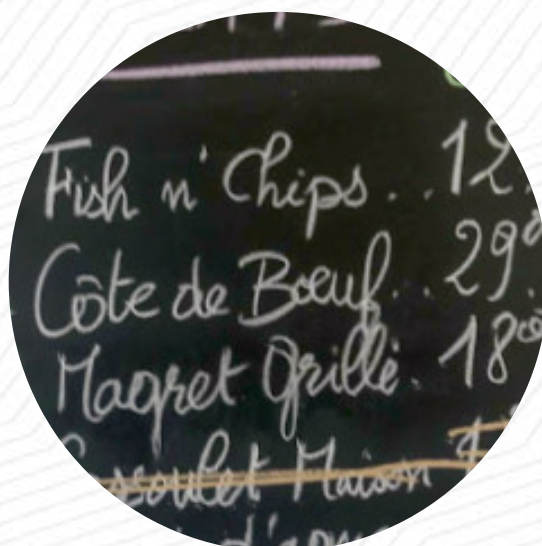 Fish n' Chips.. 12
Côte de Bœuf.. 29
Magret Grillé. 18
Maison